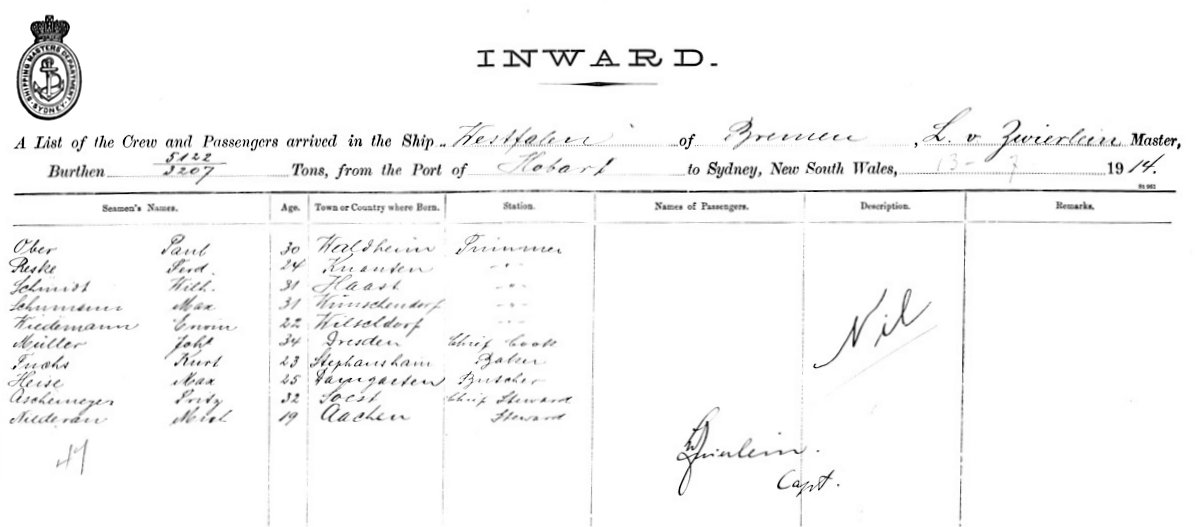 SHIPPING MASTERS DEPARTMENT SYDNEY
INWARD.
A List of the Crew and Passengers arrived in the Ship Westfalen of Bremen, L. v Zwierlein Master,
Burthen 5122 / 3207 Tons, from the Port of Hobart to Sydney, New South Wales, 13 - 7 1914.
Seamen's Names. Age. Town or Country where Born. Station. Names of Passengers. Description. Remarks.
Ober Paul 30 Waldheim Trimmer
Reske Ferd. 24 -"-
Schmidt Wilh. 31 Haast -"-
Schumann Max 31 Wünschendorf -"-
Wiedemann Erwin 22 Wilschdorf -"-
Müller Johs 34 Dresden Chief Cook
Fuchs Kurt 23 Stephansham Baker
Heise Max 25 Butscher
Aschemeyer Fritz 32 Soest Chief Steward
Niederau Mich 19 Aachen Steward
Nil
47
Zwierlein.
Capt.